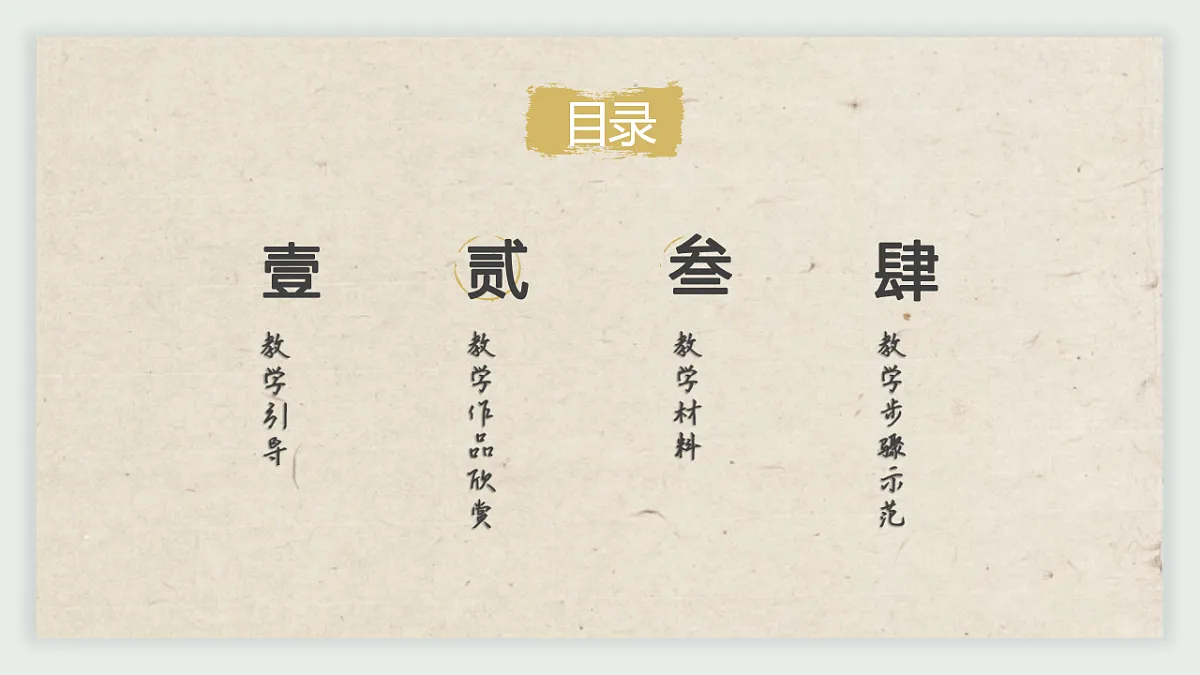 目录
壹
教学引导
贰
教学作品欣赏
叁
教学材料
肆
教学步骤示范